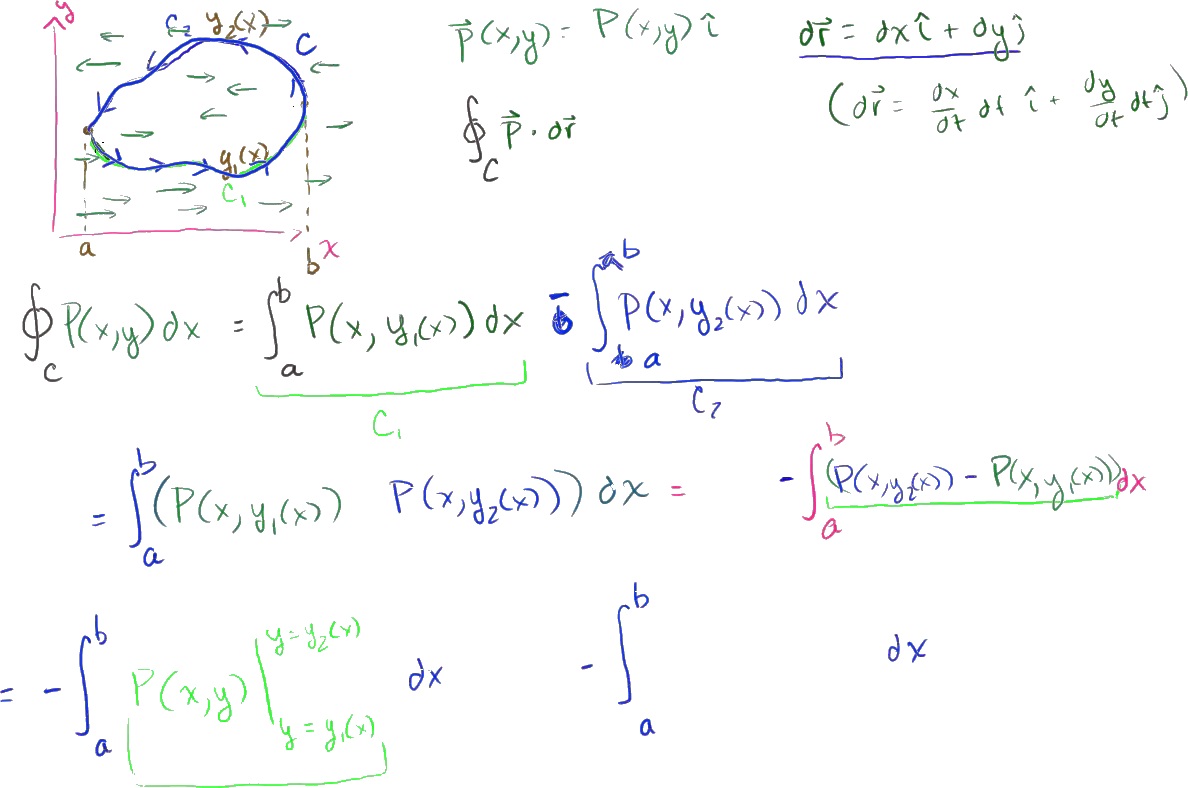 y
C₂ y₂(x)
C
y₁(x)
C₁
a
b
x
P⃗(x,y) = P(x,y) î
∮_C P⃗ · dr⃗
dr⃗ = dx î + dy ĵ
(dr⃗ = dx/dt dt î + dy/dt dt ĵ)
∮_C P(x,y) dx = ∫_a^b P(x, y₁(x)) dx - ∫_a^b P(x, y₂(x)) dx
C₁
C₂
= ∫_a^b (P(x, y₁(x)) P(x, y₂(x))) dx = - ∫_a^b (P(x, y₂(x)) - P(x, y₁(x))) dx
= - ∫_a^b P(x,y) |_{y = y₁(x)}^{y = y₂(x)} dx - ∫_a^b dx